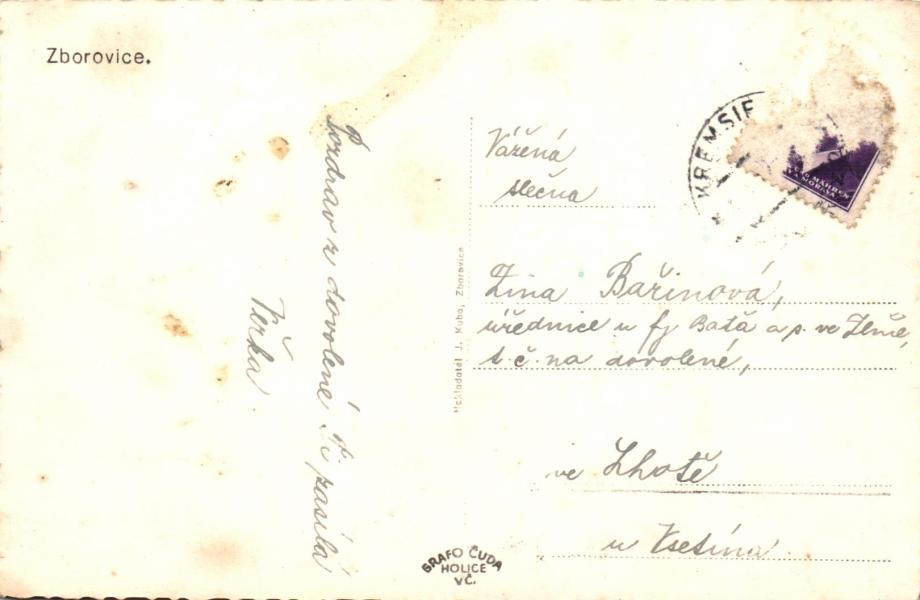 Zborovice.
Pozdrav z dovolené Ti zasílá
Věrka.
Nakladatel J. Kubo, Zborovice
GRAFO ČUDA
HOLICE
VČ.
KREMSIE
MÄHREN
MORAVA
Vážená
slečna
Zina Bařinová,
úřednice u fy Baťa a.s. ve Zlíně,
t. č. na dovolené,
ve Lhotě
u Vsetína